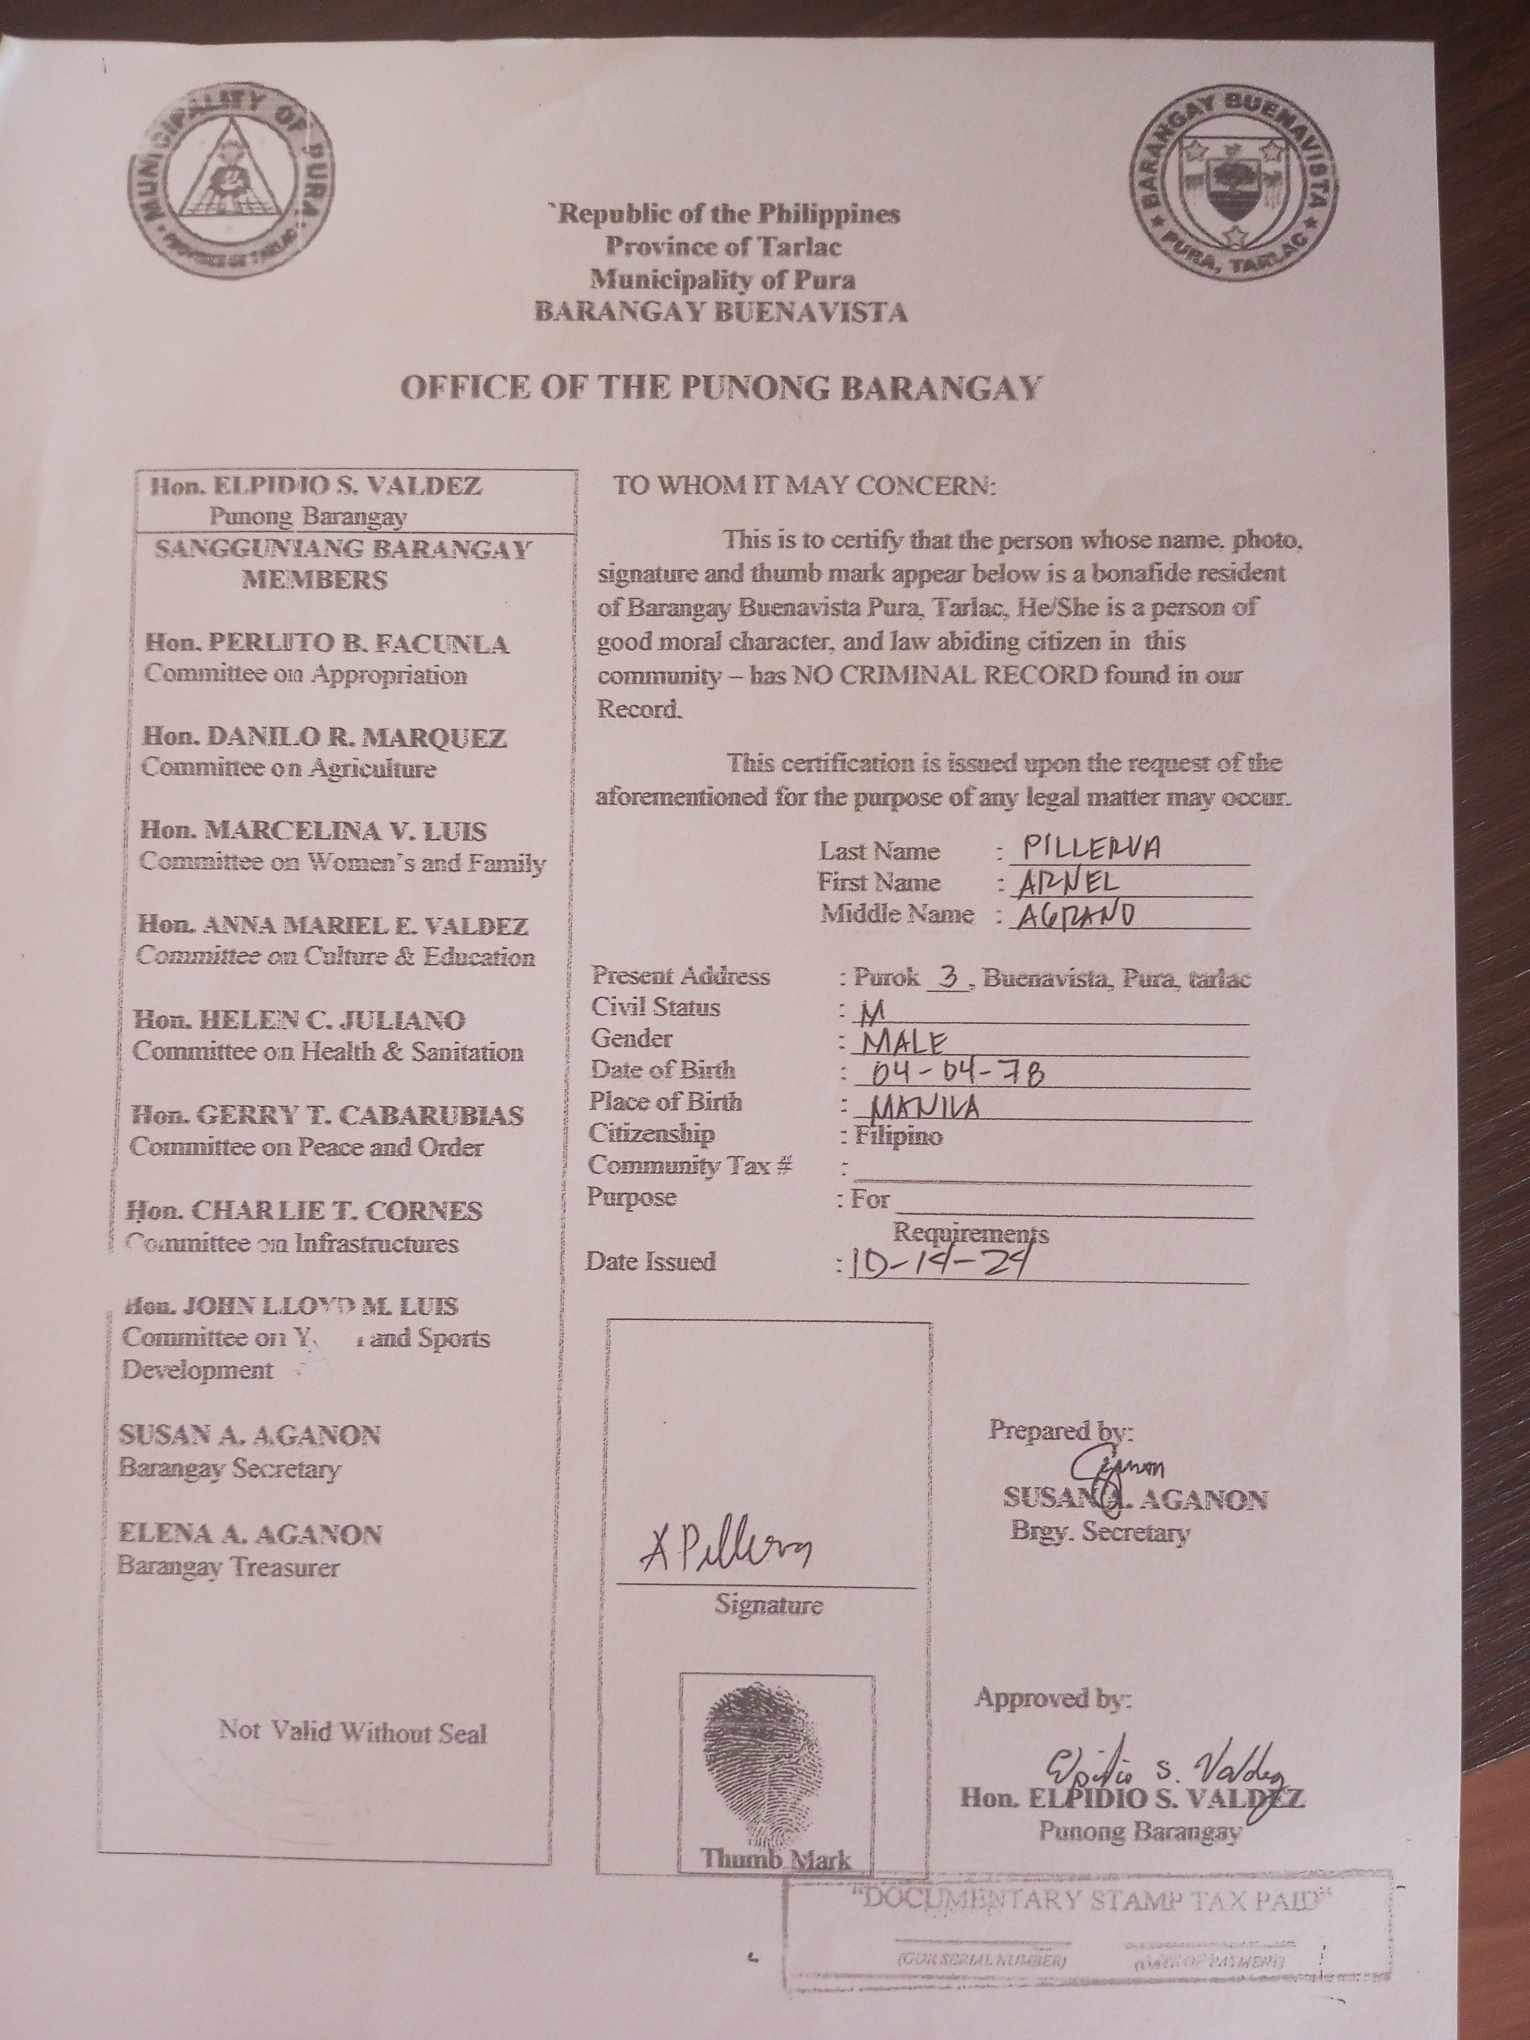 MUNICIPALITY OF PURA
PROVINCE OF TARLAC
BARANGAY BUENAVISTA
PURA, TARLAC
`Republic of the Philippines
Province of Tarlac
Municipality of Pura
BARANGAY BUENAVISTA
OFFICE OF THE PUNONG BARANGAY
Hon. ELPIDIO S. VALDEZ
Punong Barangay
SANGGUNIANG BARANGAY
MEMBERS
Hon. PERLITO B. FACUNLA
Committee on Appropriation
Hon. DANILO R. MARQUEZ
Committee on Agriculture
Hon. MARCELINA V. LUIS
Committee on Women's and Family
Hon. ANNA MARIEL E. VALDEZ
Committee on Culture & Education
Hon. HELEN C. JULIANO
Committee on Health & Sanitation
Hon. GERRY T. CABARUBIAS
Committee on Peace and Order
Hon. CHARLIE T. CORNES
Committee on Infrastructures
Hon. JOHN LLOYD M. LUIS
Committee on and Sports
Development
SUSAN A. AGANON
Barangay Secretary
ELENA A. AGANON
Barangay Treasurer
Not Valid Without Seal
TO WHOM IT MAY CONCERN:
This is to certify that the person whose name, photo,
signature and thumb mark appear below is a bonafide resident
of Barangay Buenavista Pura, Tarlac, He/She is a person of
good moral character, and law abiding citizen in this
community – has NO CRIMINAL RECORD found in our
Record.
This certification is issued upon the request of the
aforementioned for the purpose of any legal matter may occur.
Last Name : PILLERVA
First Name : ARNEL
Middle Name : AGRANO
Present Address : Purok 3, Buenavista, Pura, tarlac
Civil Status : M
Gender : MALE
Date of Birth : 04-04-78
Place of Birth : MANILA
Citizenship : Filipino
Community Tax # :
Purpose : For
Requirements
Date Issued : 10-14-24
A Pillerva
Signature
Thumb Mark
Prepared by:
SUSAN A. AGANON
Brgy. Secretary
Approved by:
Elpidio S. Valdez
Hon. ELPIDIO S. VALDEZ
Punong Barangay
"DOCUMENTARY STAMP TAX PAID"
(GOR SERIAL NUMBER) (DATE OF PAYMENT)